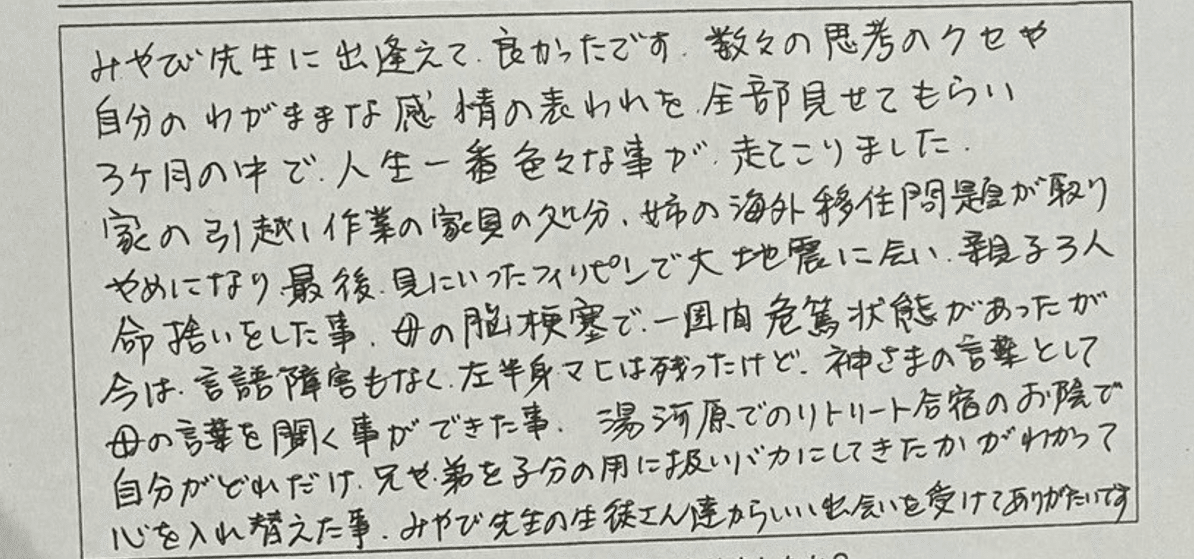 みやび先生に出逢えて、良かったです。数々の思考のクセや
自分のわがままな感情の表われを、全部見せてもらい
3ケ月の中で、人生一番色々な事が、走てこりました。
家の引越し作業の家具の処分、姉の海外移住問題が取り
やめになり、最後、見にいったフィリピンで大地震に会い、親子3人
命拾いをした事、母の脳梗塞で、一週間危篤状態があったが
今は、言語障害もなく、左半身マヒは残ったけど、神さまの言葉として
母の言葉を聞く事ができた事、湯河原でのリトリート合宿のお陰で
自分がどれだけ、兄や弟を子分の用に扱いバカにしてきたかがわかって
心を入れ替えた事、みやび先生の生徒さん達からいい出会いを受けてありがたいです